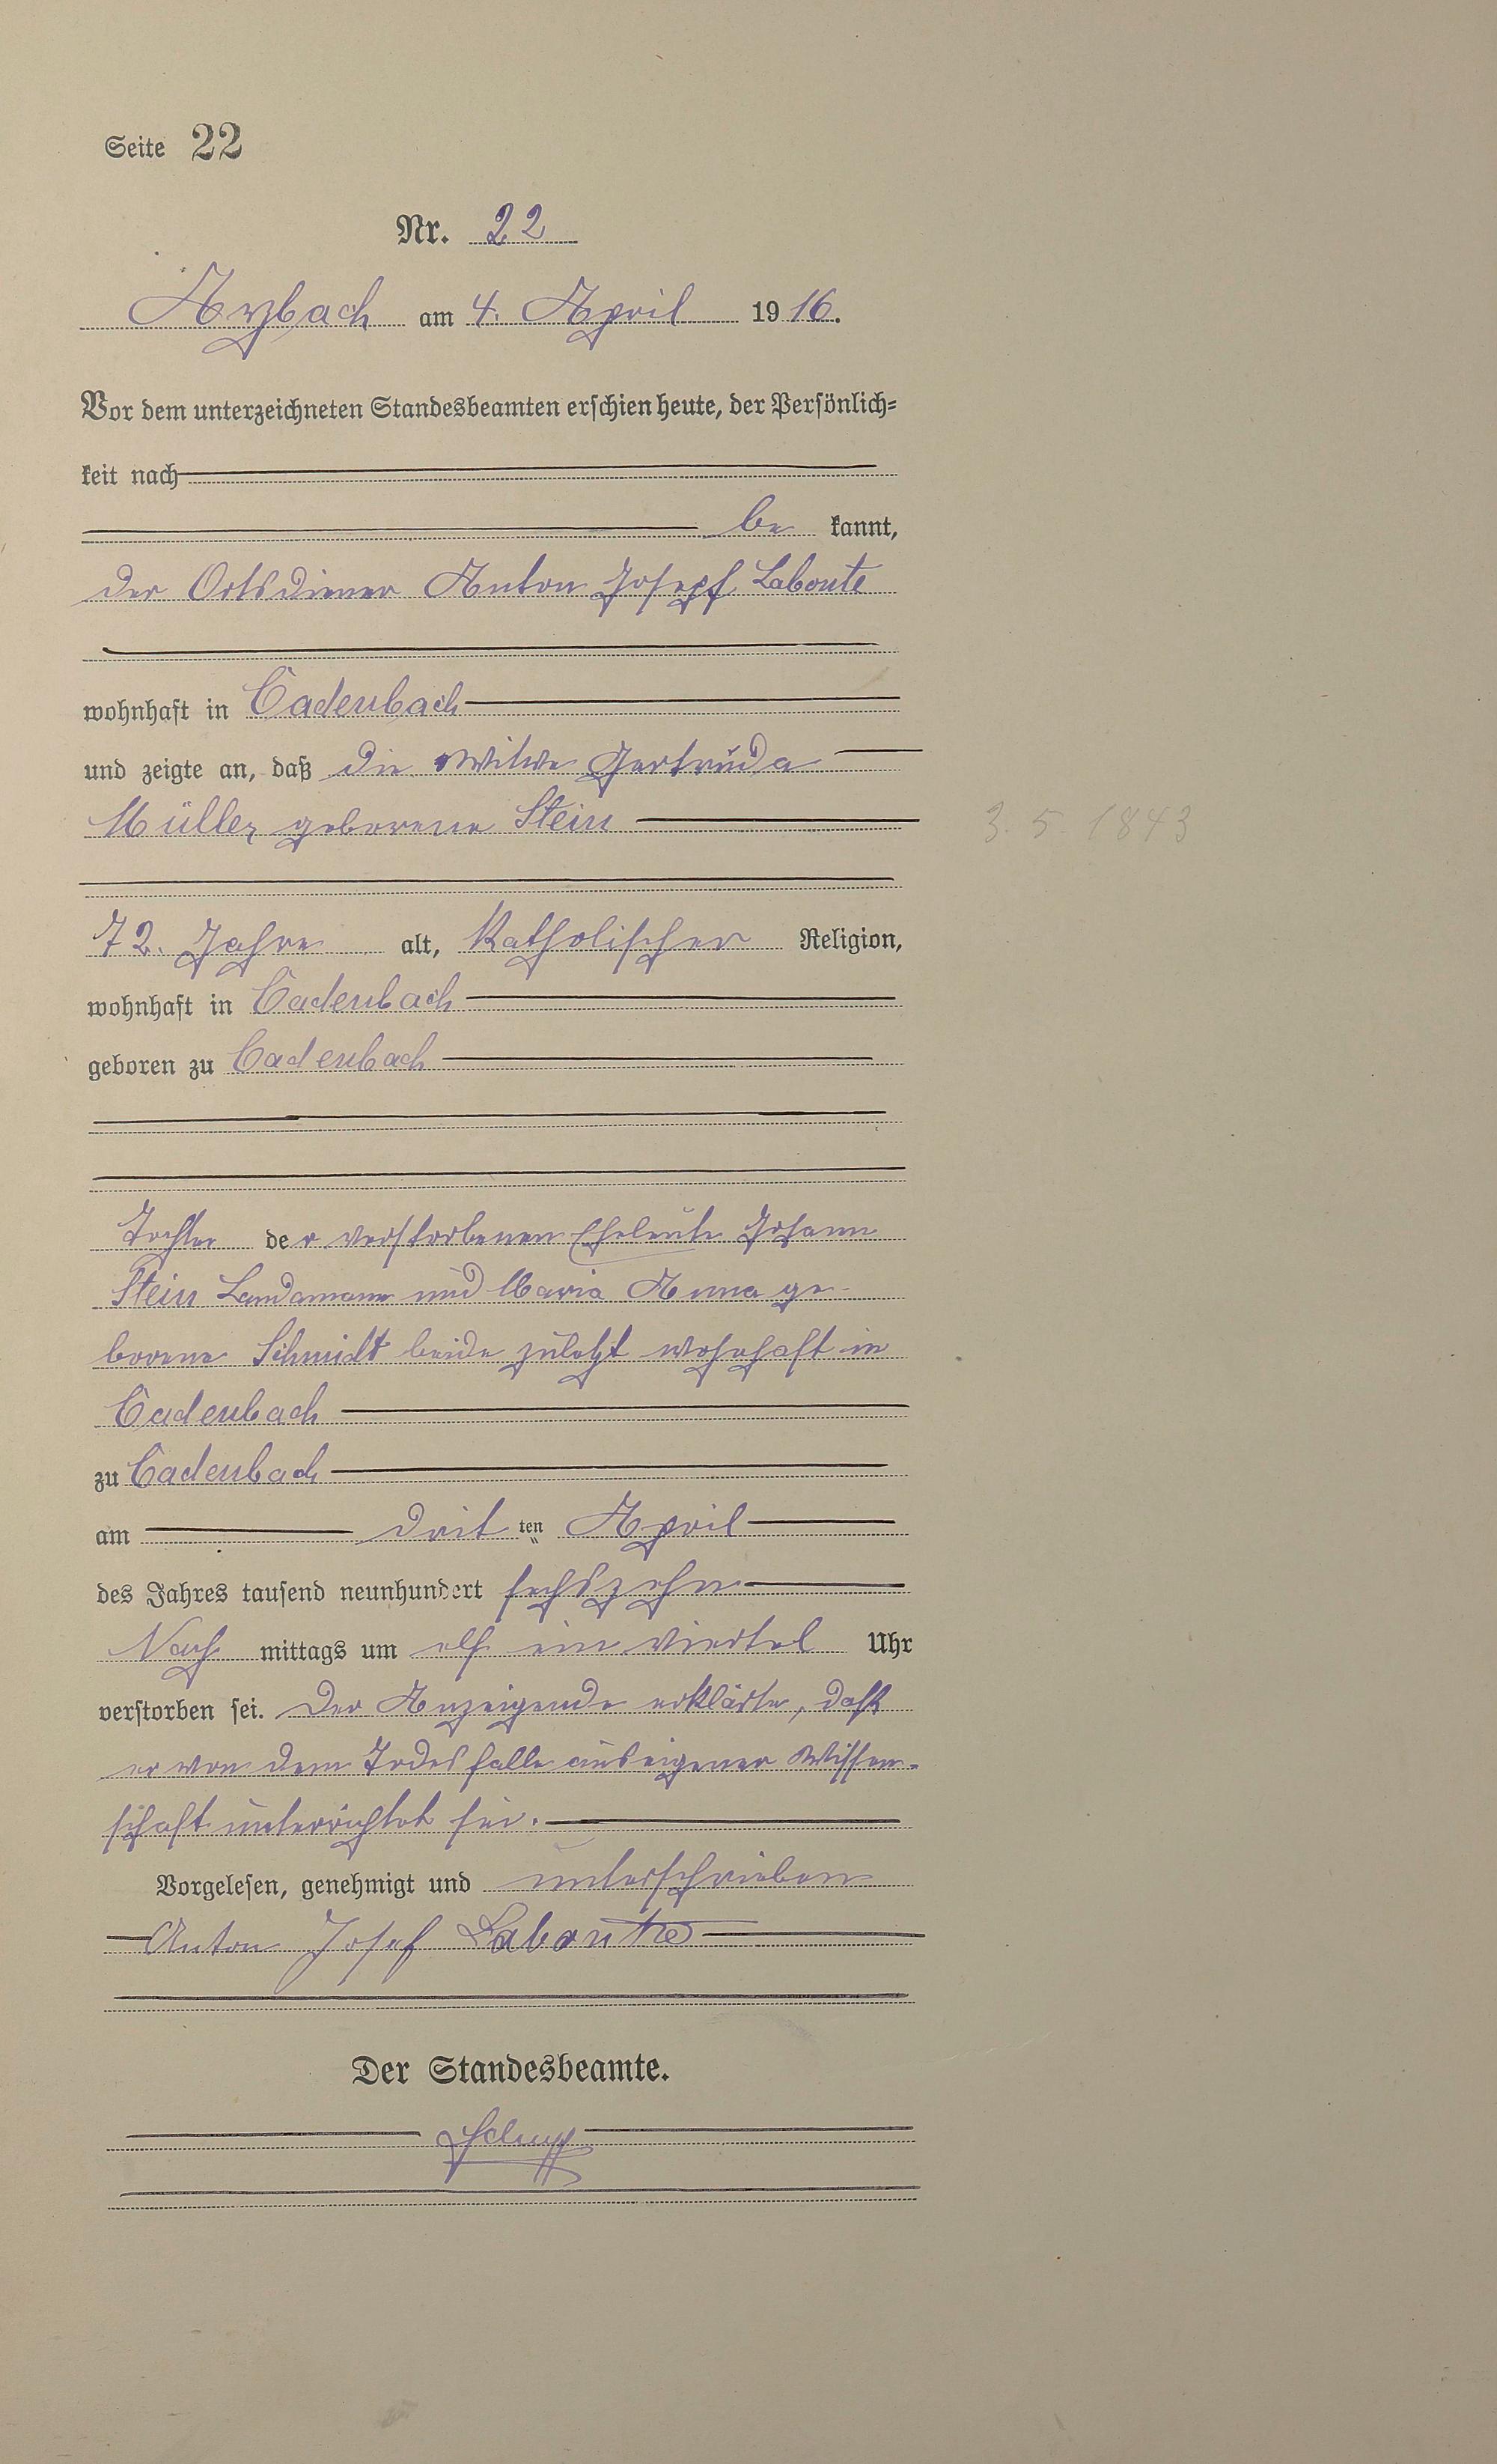 Seite 22
Nr. 22
Arzbach am 4. April 1916.
Vor dem unterzeichneten Standesbeamten erschien heute, der Persönlich-
keit nach
be kannt,
der Ortsdiener Anton Josepf Labonte
wohnhaft in Cadenbach
und zeigte an, daß die Witwe Gertruda
Müller geborene Stein
3. 5. 1843
72. Jahre alt, Katholischer Religion,
wohnhaft in Cadenbach
geboren zu Cadenbach
Tochter der verstorbenen Eheleute Johann
Stein Landamann und Maria Anna ge-
borene Schmidt beide zuletzt wohnhaft in
Cadenbach
zu Cadenbach
am drit ten April
des Jahres tausend neunhundert sechszehn
Nach mittags um elf ein viertel Uhr
verstorben sei. Der Anzeigende erklärte, daß
er von dem Todesfalle aus eigener Wissen-
schaft unterrichtet sei.
Vorgelesen, genehmigt und unterschrieben
Anton Josef Labonte
Der Standesbeamte.